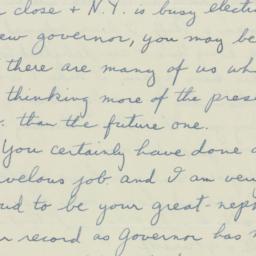 close + N.Y. is busy
new governor, you may be
there are many of us
thinking more of the
than the future one.
You certainly have done
job and I am
to be your great-
record as Governor has